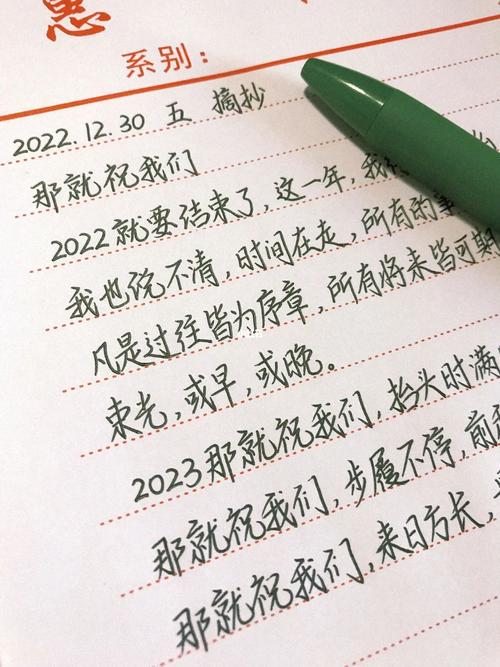 惠
系别：
2022.12.30 五 摘抄
那就祝我们
2022就要结束了，这一年，我
我也说不清，时间在走，所有的事
凡是过往皆为序章，所有将来皆可期
束光，或早，或晚。
2023那就祝我们，抬头时满
那就祝我们，步履不停，前
那就祝我们，来日方长，